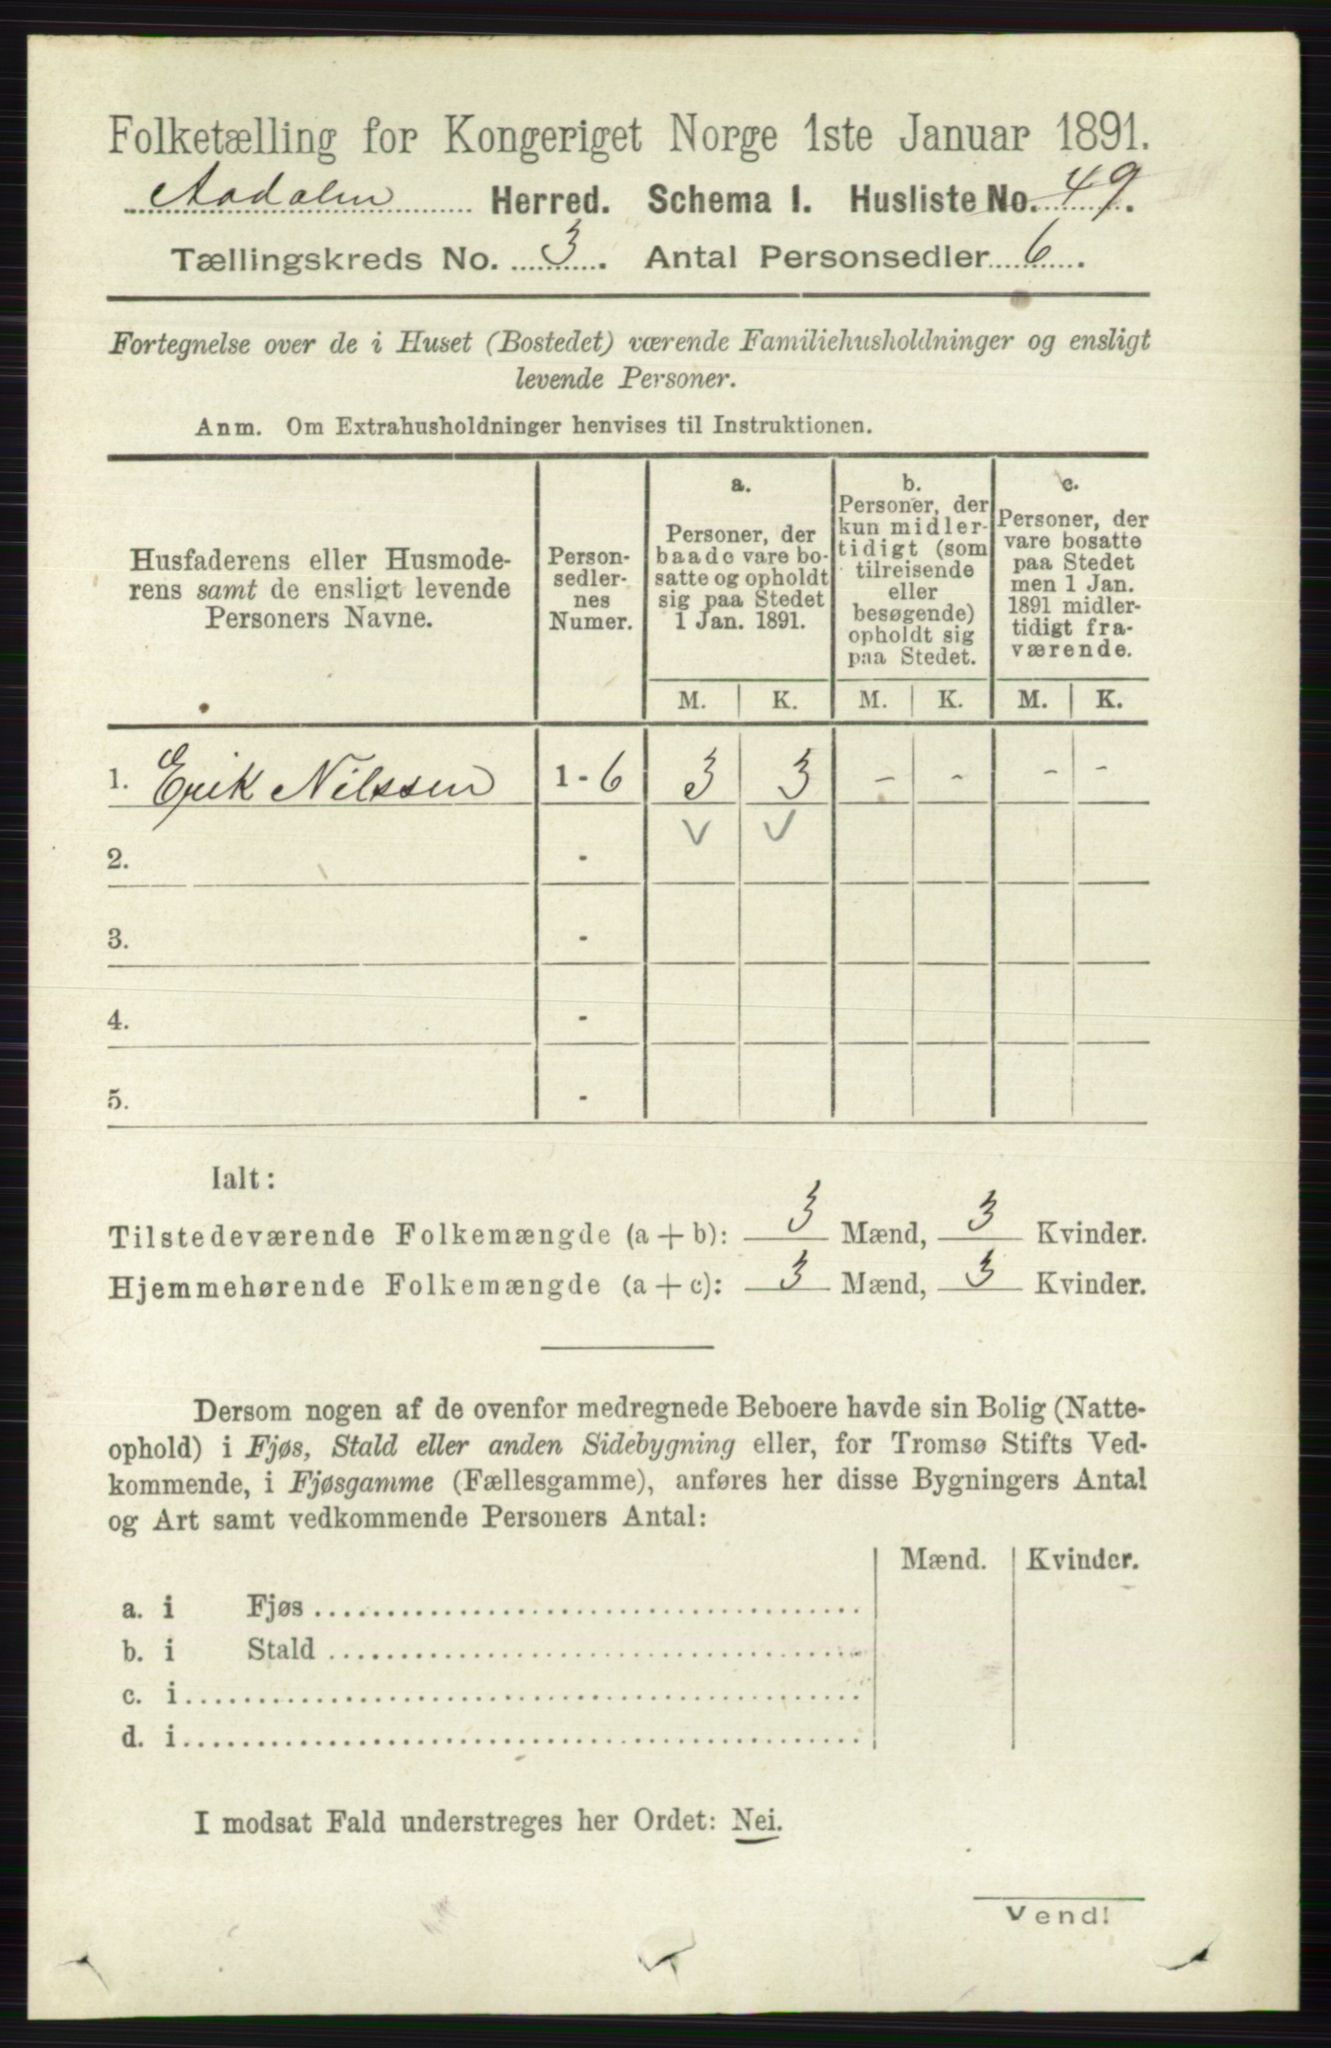 Folketælling for Kongeriget Norge 1ste Januar 1891.
Aadalen Herred. Schema I. Husliste No. 49.
Tællingskreds No. 3. Antal Personsedler 6.
Fortegnelse over de i Huset (Bostedet) værende Familiehusholdninger og ensligt
levende Personer.
Anm. Om Extrahusholdninger henvises til Instruktionen.
Husfaderens eller Husmode-
rens samt de ensligt levende
Personers Navne.
Person-
sedler-
nes
Numer.
a.
Personer, der
baade vare bo-
satte og opholdt
sig paa Stedet
1 Jan. 1891.
b.
Personer, der
kun midler-
tidigt (som
tilreisende
eller
besøgende)
opholdt sig
paa Stedet.
c.
Personer, der
vare bosatte
paa Stedet
men 1 Jan.
1891 midler-
tidigt fra-
værende.
M. K. M. K. M. K.
1. Erik Nilssen 1 - 6 3 3 - - - -
2. - V V
3. -
4. -
5. -
Ialt:
Tilstedeværende Folkemængde (a + b): 3 Mænd, 3 Kvinder.
Hjemmehørende Folkemængde (a + c): 3 Mænd, 3 Kvinder.
Dersom nogen af de ovenfor medregnede Beboere havde sin Bolig (Natte-
ophold) i Fjøs, Stald eller anden Sidebygning eller, for Tromsø Stifts Ved-
kommende, i Fjøsgamme (Fællesgamme), anføres her disse Bygningers Antal
og Art samt vedkommende Personers Antal:
Mænd. Kvinder.
a. i Fjøs
b. i Stald
c. i
d. i
I modsat Fald understreges her Ordet: Nei.
Vend!